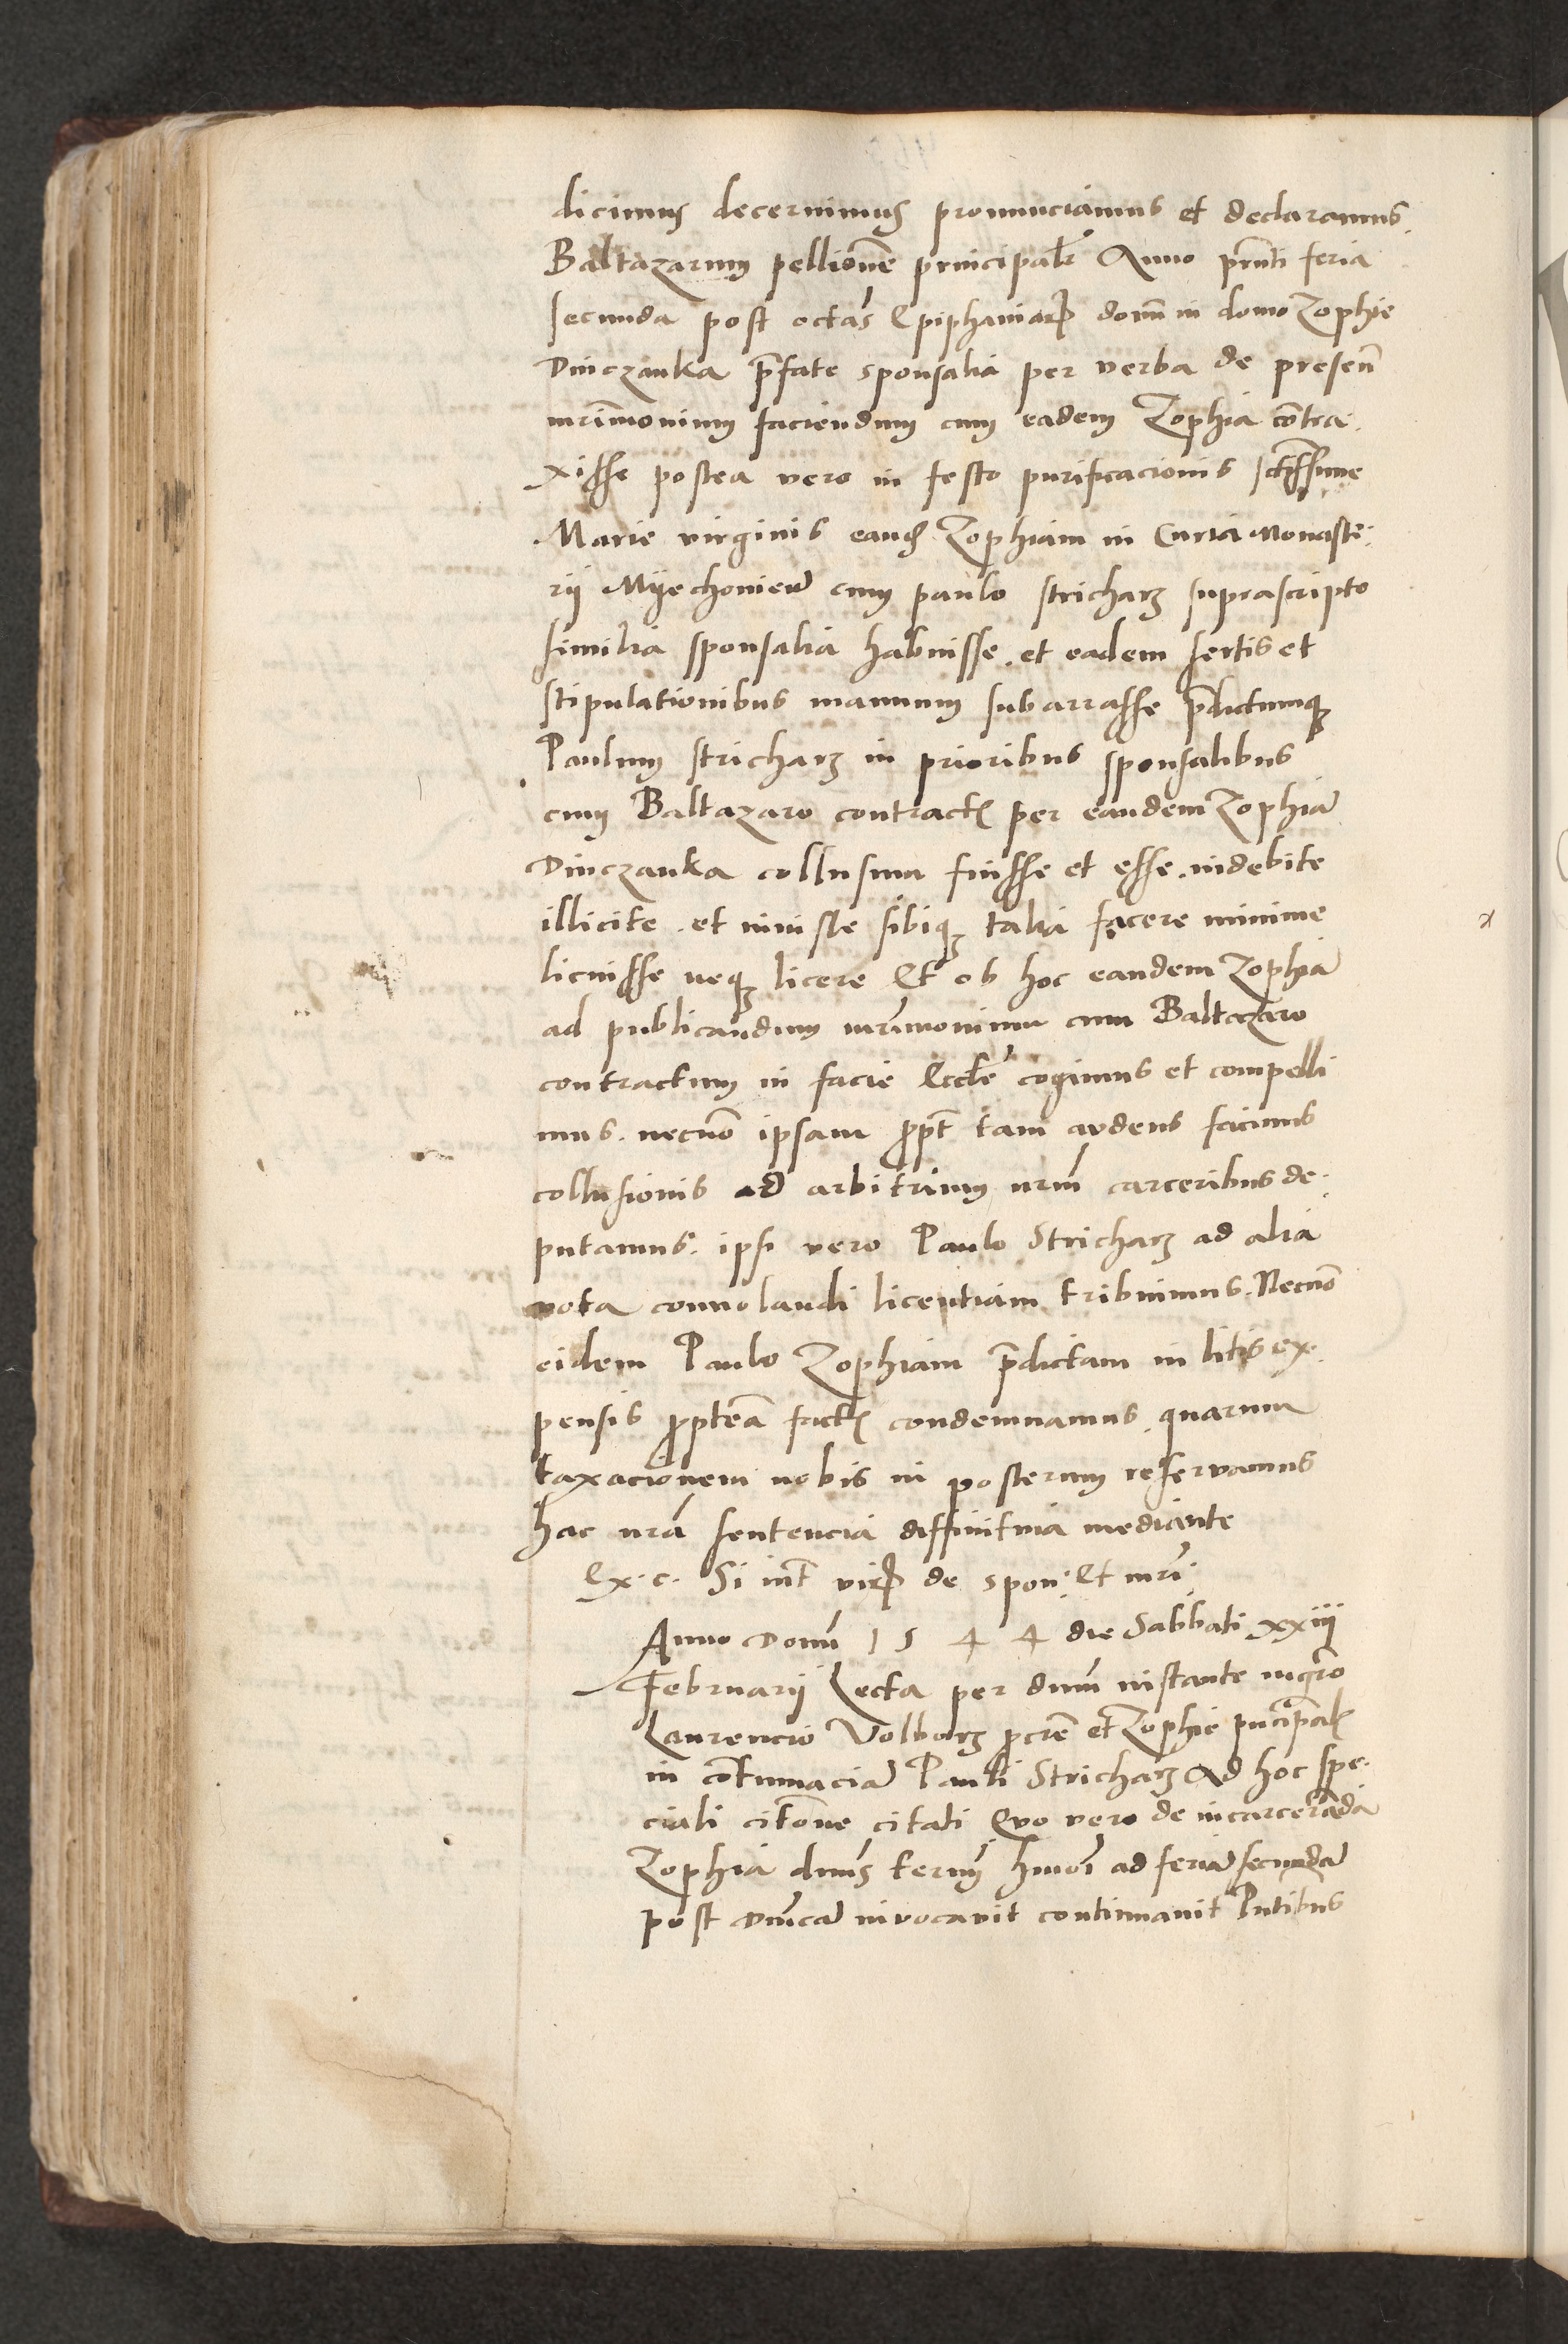 dicimus decernimus pronunciamus et declaramus.
Baltazarum pellionẽ principalr̃ Anno pñti feria
secunda post octãs Epiphaniar̃ domĩ in domo Zophie
Dinczanka p̃fate sponsalia per verba de preseñ
mr̃imonium faciendum cum eadem Zophia cõtra.
xisse postea vero in festo purificacionis sctissime
Marie virginis eand Zophiam in Curia Monaste:
rij Myechovieñ cum paulo stricharz suprascripto
similia sponsalia habuisse. et eadem sertis et
stipulationibus manuum subarrasse p̃dictumq;
Paulum stricharz in prioribus sponsalibus
cum Baltazaro contract per eandem Zophiã
Dinczanka collusum fuisse et esse. indebite
illicite. et iniuste sibiq; talia facere minime
licuisse neq; licere Et ob hoc eandem Zophiã
ad publicandum mr̃imonium cum Baltazaro
contractum in facie Eccle cogimus et compelli
mus. necnõ ipsam ppt tam ardens facinus
collusionis ad arbitrium nrm̃ carceribus de:
putamus. ipsi vero Paulo Stricharz ad alia
vota convolandi licentiam tribuimus. Necnõ
eidem Paulo Zophiam p̃dictam in litis ex.
pensis ppteã fact condemnamus. quarum
taxacionem nobis in posterum reservamus
hac nrã sentencia diffinitiva mediante
Ex. c. Si int vir̃ de spon: Et mr̃i:
Anno Domĩ 1544 die Sabbati xxiij
Februarij Lecta per dnm̃ instante mgr̃o
Laurencio Volbarz pcrẽ et Zophie pncipal
in cõtumaciã Pauli Stricharz Ad hoc spe.
ciali citõne citati Quo vero de incarcerãda
Zophia dnũs termĩ hmõi ad feriã secundã
post dnĩcã invocavit continuavit Pntibus